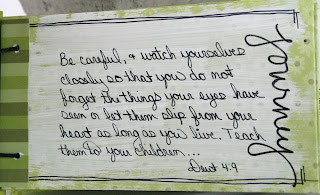 Be careful, & watch yourselves
closely so that you do not
forget the things your eyes have
seen or let them slip from your
heart as long as you live. Teach
them to your children...
Deut 4:9
journey